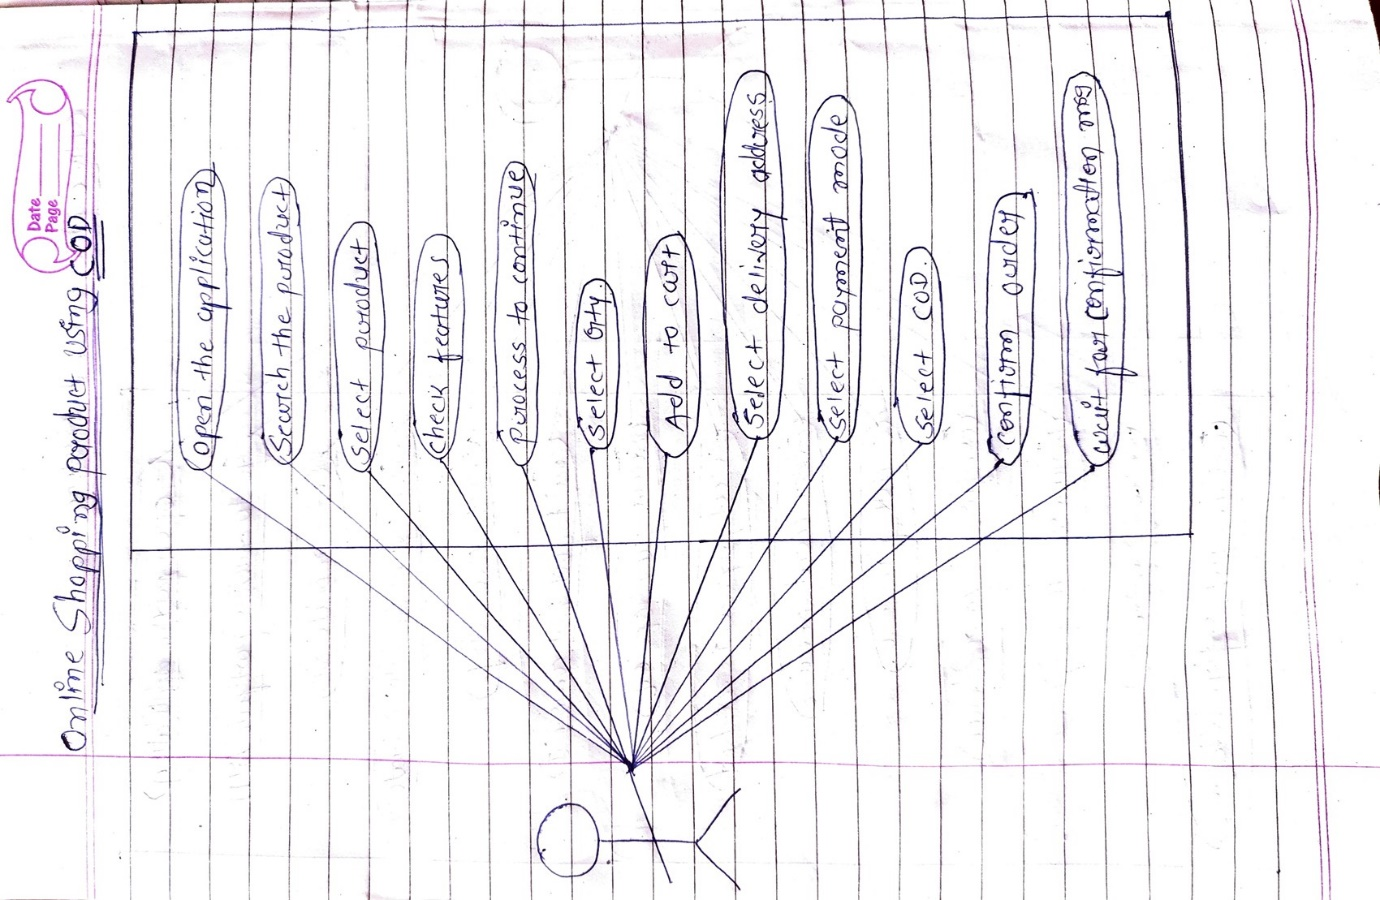 Date
Page
Online Shopping product using COD
Open the application
Search the product
Select product
Check features
Process to continue
Select Qty.
Add to cart
Select delivery address
Select payment mode
Select COD.
Confirm order
wait for Confirmation msg